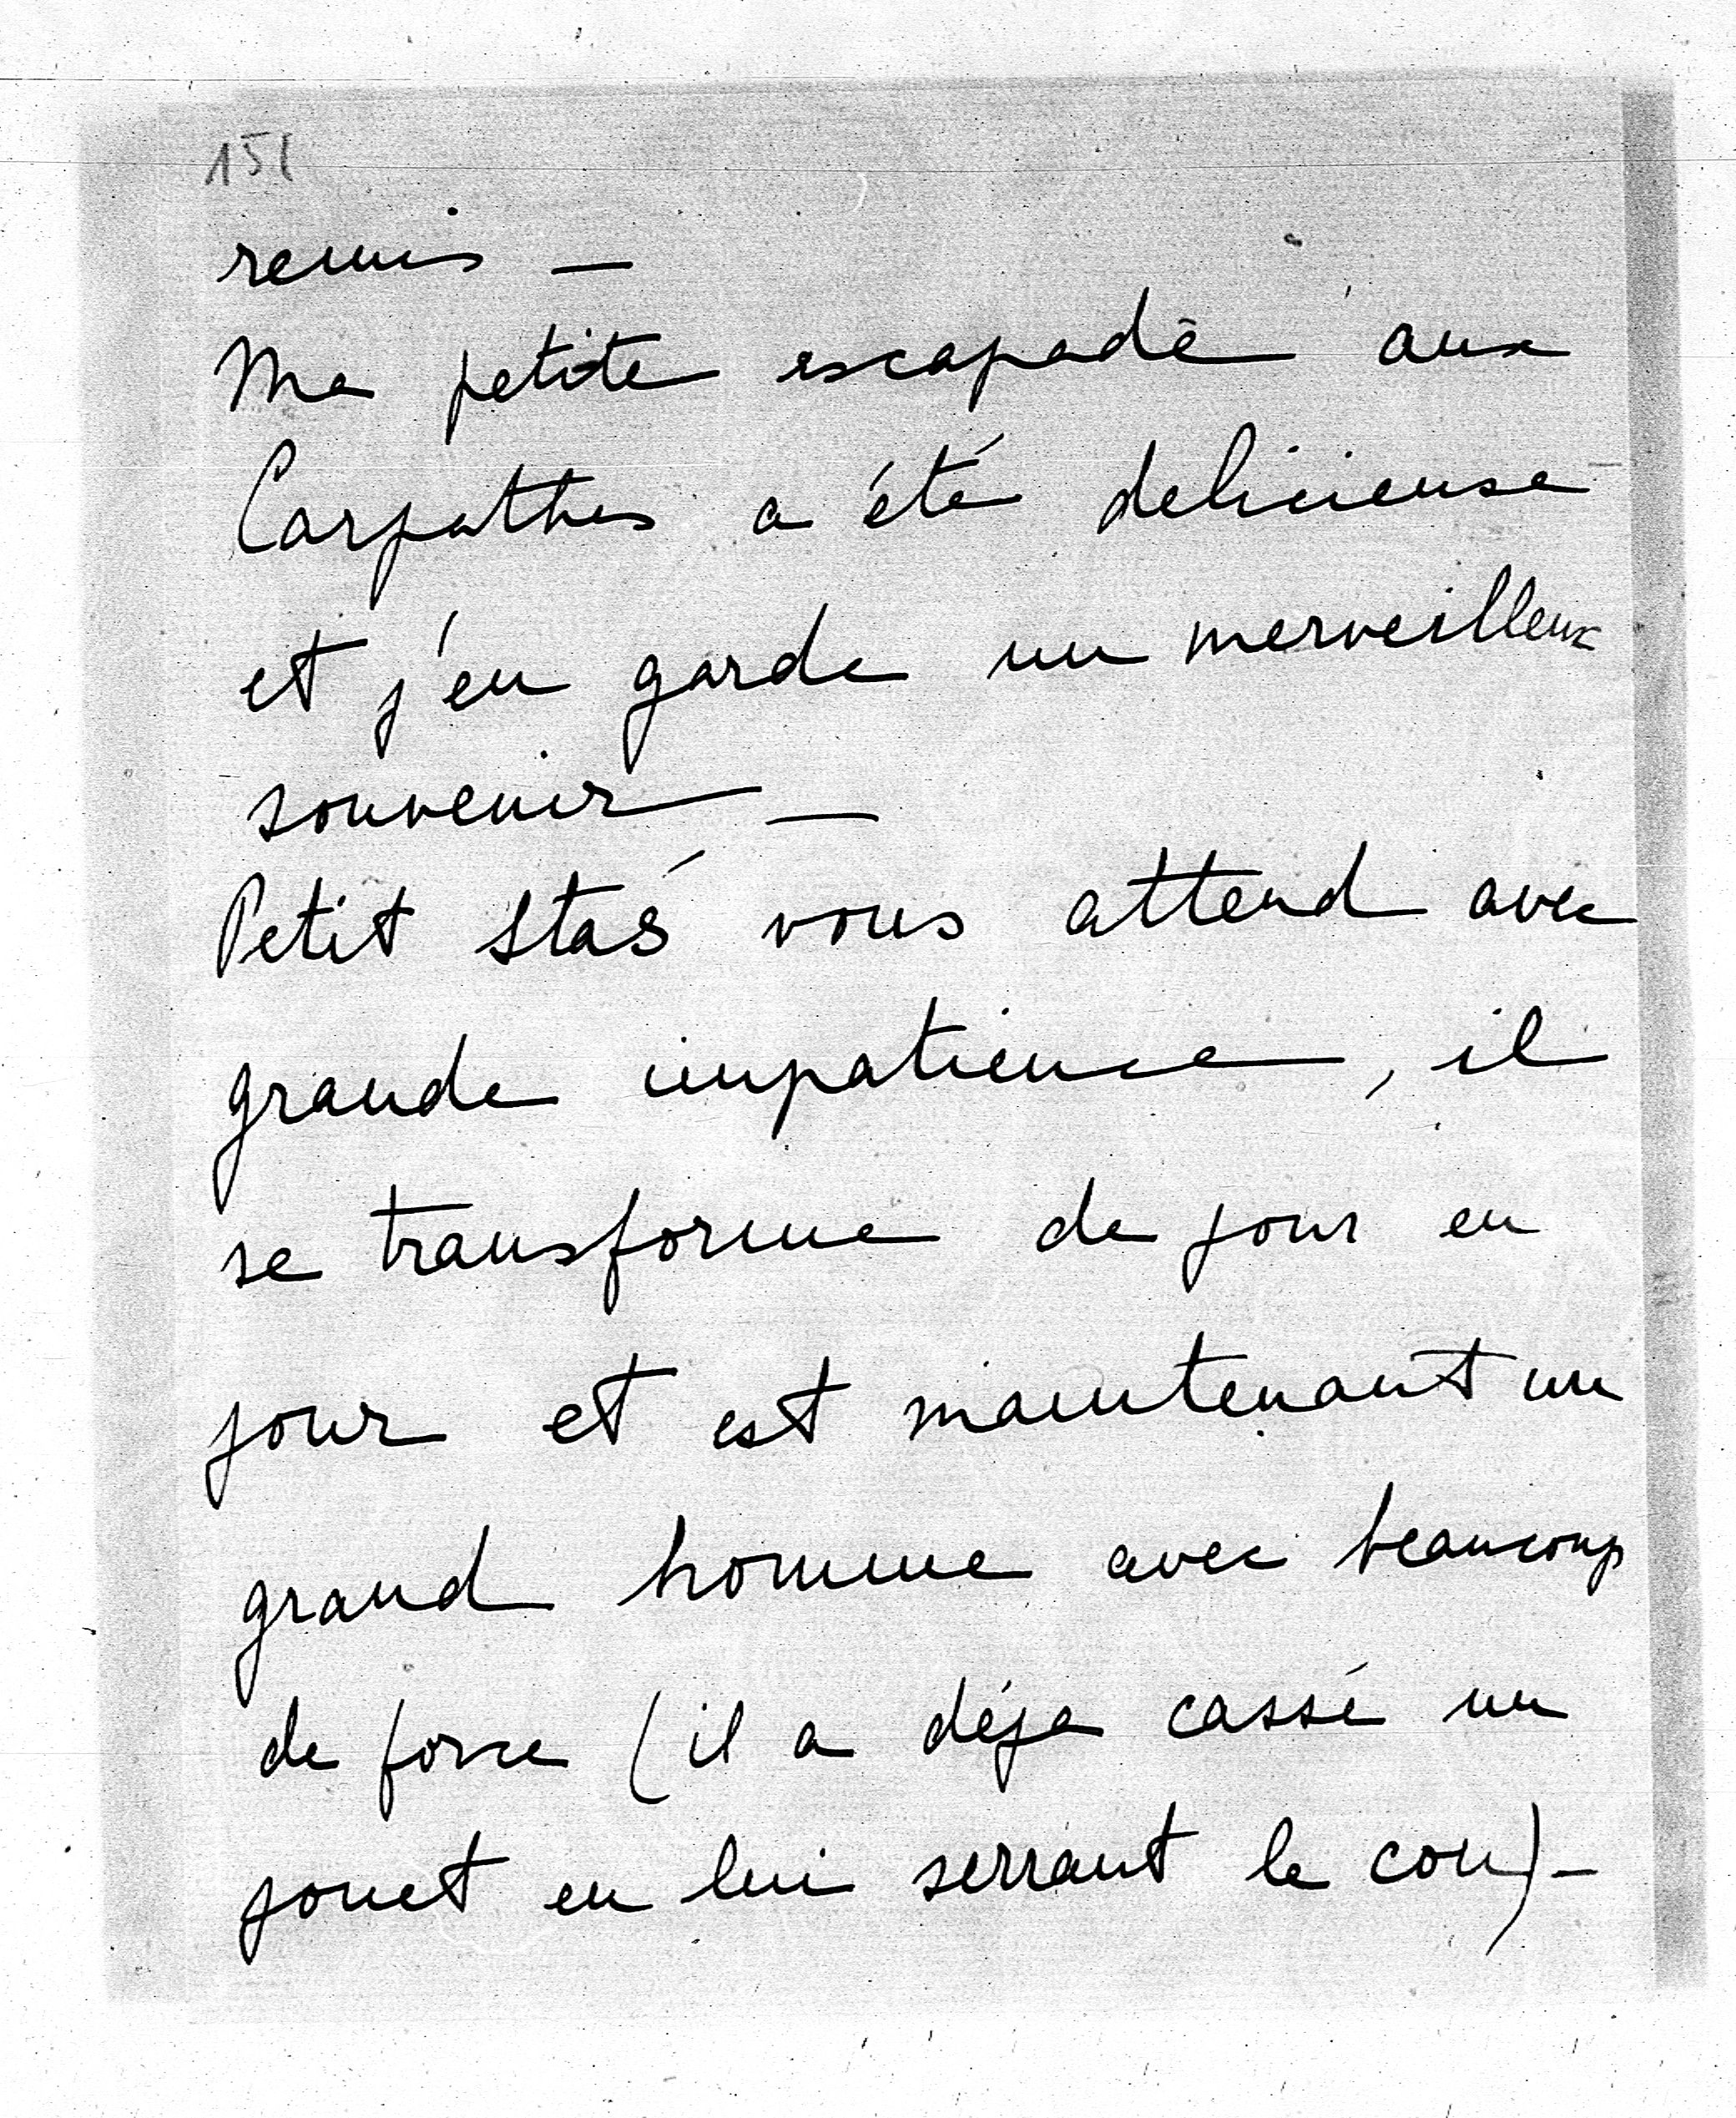 151
remis —
Ma petite escapade aux
Carpathes a été delicieuse
et j'en garde un merveilleux
souvenir —
Petit Staś vous attend avec
grande impatience, il
se transforme de jour en
jour et est maintenant un
grand homme avec beaucoup
de force (il a déja cassé un
jouet en lui serrant le cou) —